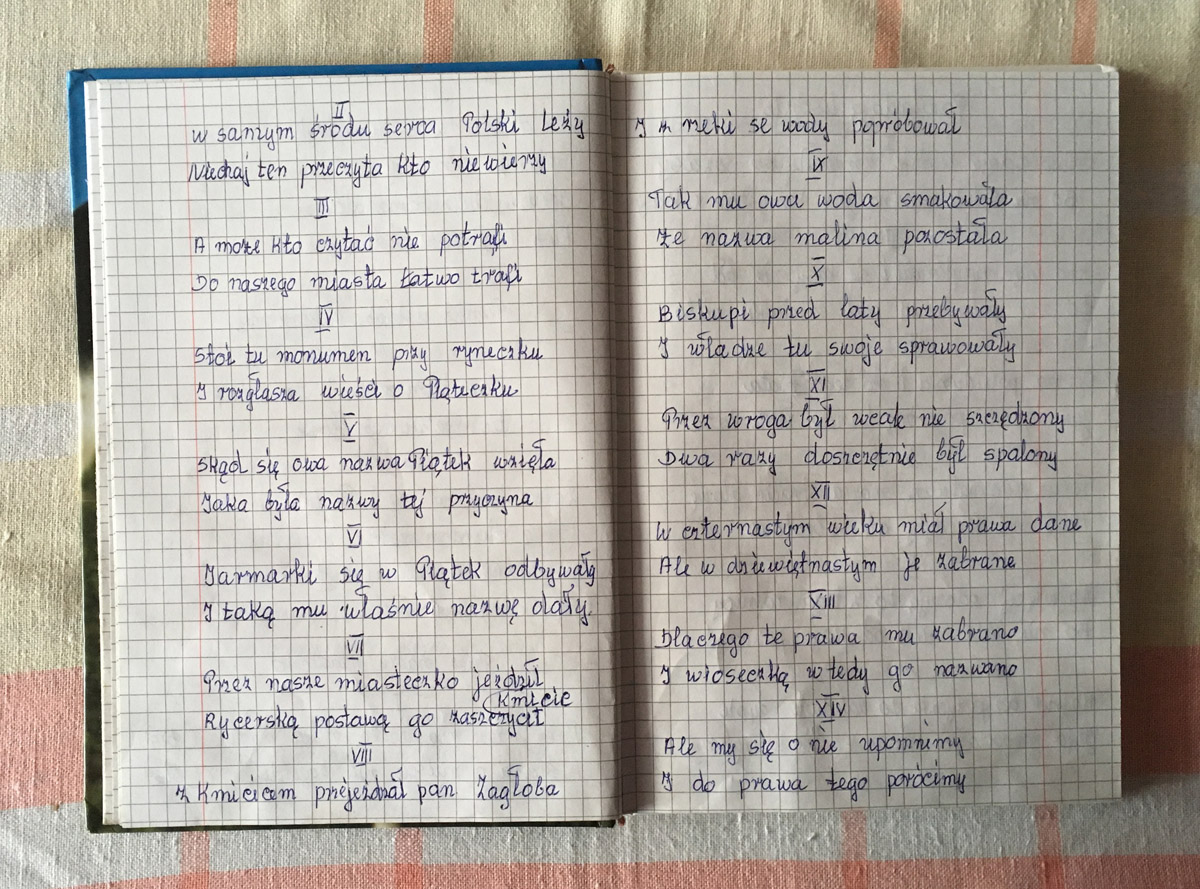 II
w samym środu serca Polski leży
Niechaj ten przeczyta kto nie wierzy
III
A może kto czytać nie potrafi
Do naszego miasta łatwo trafi
IV
Stoi tu monumen przy ryneczku
I rozgłasza wieści o Piąteczku
V
Skąd się owa nazwa Piątek wzięła
Jaka była nazwy tej przyczyna
VI
Jarmarki się w Piątek odbywały
I taką mu właśnie nazwę dały.
VII
Przez nasze miasteczko jeździł
Kmicic
Rycerską postawą go zaszczycił
VIII
Z Kmicicem przejeżdżał pan Zagłoba
I z rzeki se wody popróbował
IX
Tak mu owa woda smakowała
że nazwa malina pozostała
X
Biskupi przed laty przebywały
I władze tu swoje sprawowały
XI
Przez wroga był wcale nie szczędzony
Dwa razy doszczętnie był spalony
XII
W czternastym wieku miał prawa dane
Ale w dziewiętnastym je zabrane
XIII
Dlaczego te prawa mu zabrano
I wioseczką w tedy go nazwano
XIV
Ale my się o nie upomnimy
I do prawa tego porócimy